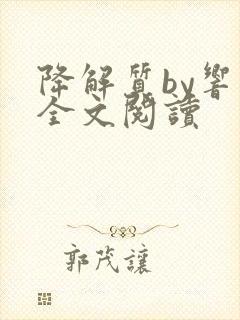 降解質by響
全文閱讀
郭茂讓